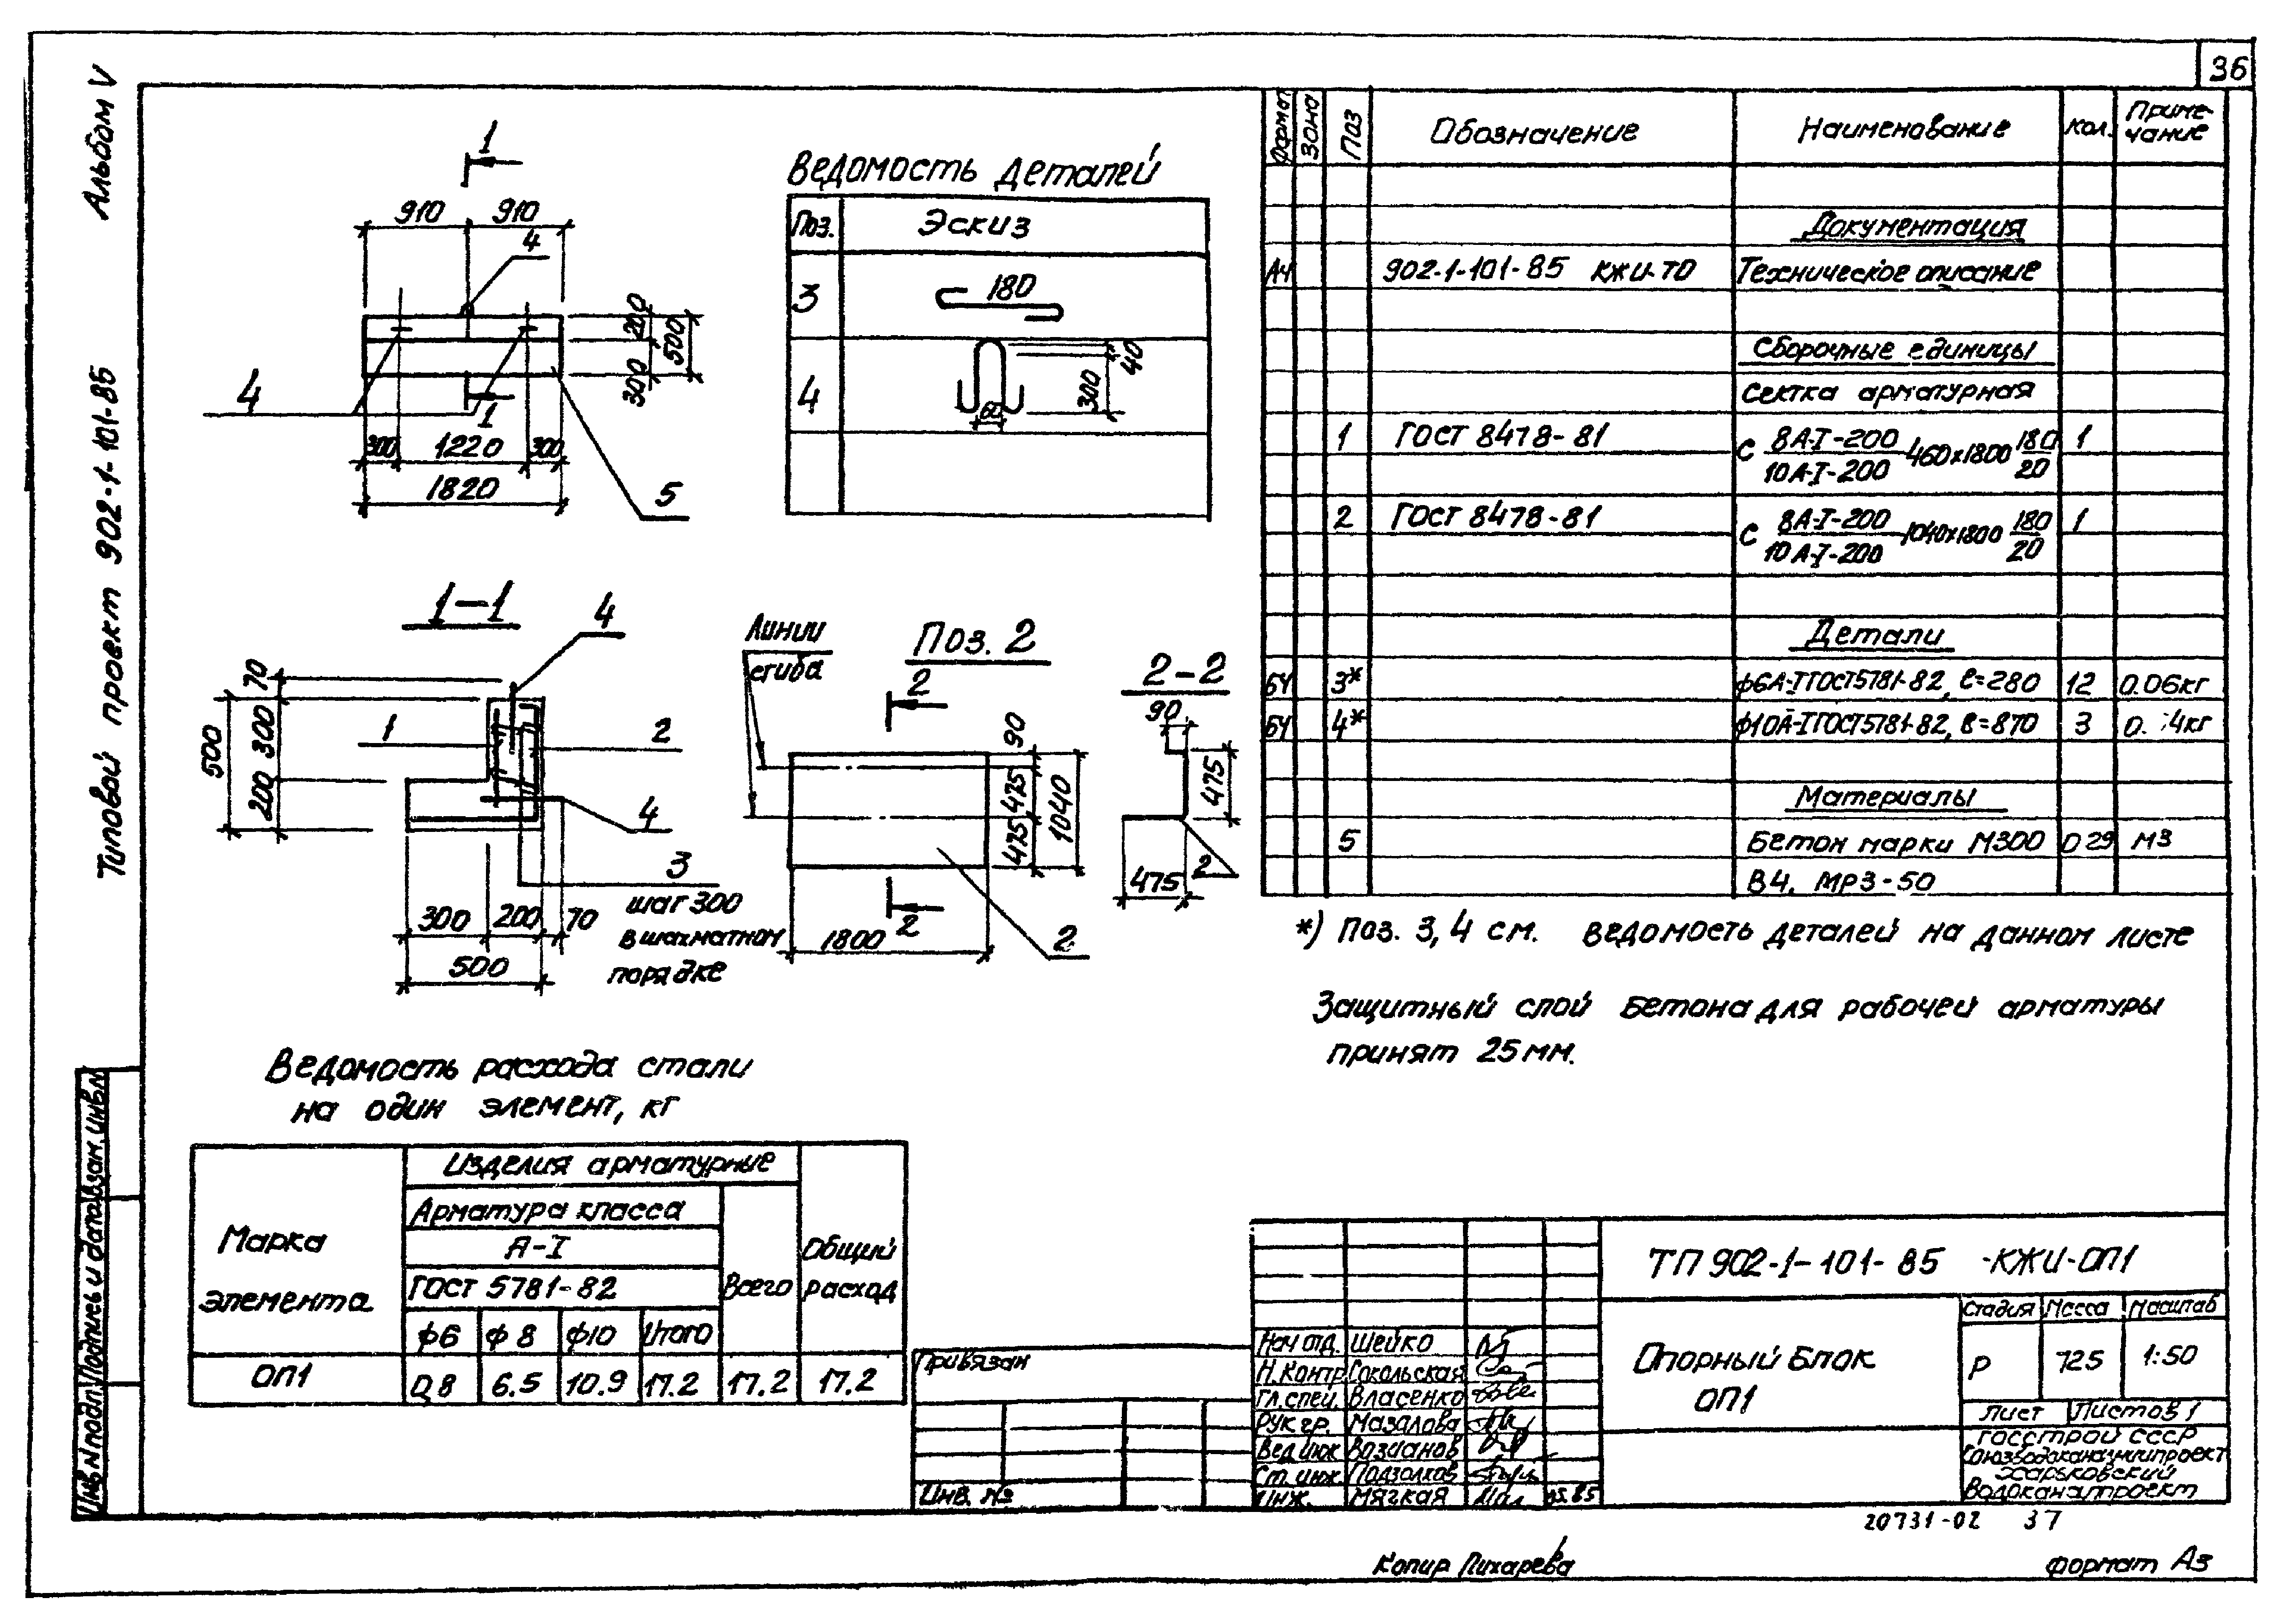 36
Альбом V
Типовой проект 902-1-101-85
1
910 910
4
200
500
300
4
1
300 1220 300
1820
5
Ведомость деталей
Поз. Эскиз
3 180
4 60 300 40
1-1
4
70
500 300 200
1 2
4
3
шаг 300
в шахматном
порядке
300 200 70
500
Линии
сгиба
Поз. 2
2
90
475
475
1040
1800
2
2
2-2
90
475
475
2
Формат Зона Поз Обозначение Наименование Кол. Приме-
чание
Документация
А4 902-1-101-85 КЖИ-ТО Техническое описание
Сборочные единицы
Сетка арматурная
1 ГОСТ 8478-81 С 8А-I-200 / 10А-I-200 460х1800 180/20 1
2 ГОСТ 8478-81 С 8А-I-200 / 10А-I-200 1040х1800 180/20 1
Детали
БЧ 3* ф6А-I ГОСТ 5781-82, ℓ=280 12 0.06кг
БЧ 4* ф10А-I ГОСТ 5781-82, ℓ=870 3
Материалы
5 Бетон марки М300 0.29 м3
В4, МРЗ-50
*) Поз. 3, 4 см. ведомость деталей на данном листе
Защитный слой бетона для рабочей арматуры
принят 25мм.
Ведомость расхода стали
на один элемент, кг
Марка
элемента
Изделия арматурные
Арматура класса
А-I
ГОСТ 5781-82
Всего
Общий
расход
ф6 ф8 ф10 Итого
ОП1 0,8 6.5 10.9 17.2 17.2 17.2
Инв N подл. Подпись и дата Взам. инв. N
Привязан
Инв. №
Нач отд. Шейко
Н.Контр Сокольская
Гл. спец. Власенко
Рук гр. Мазалова
Вед инж Возианов
Ст. инж. Подзолков
Инж. Мягкая 05.85
ТП 902-1-101-85 -КЖИ-ОП1
Опорный блок
ОП1
Стадия Масса Масштаб
Р 725 1:50
Лист Листов 1
Госстрой СССР
Союзводоканалниипроект
Харьковский
Водоканалпроект
20731-02 37
Копир Лихарева
Формат А3